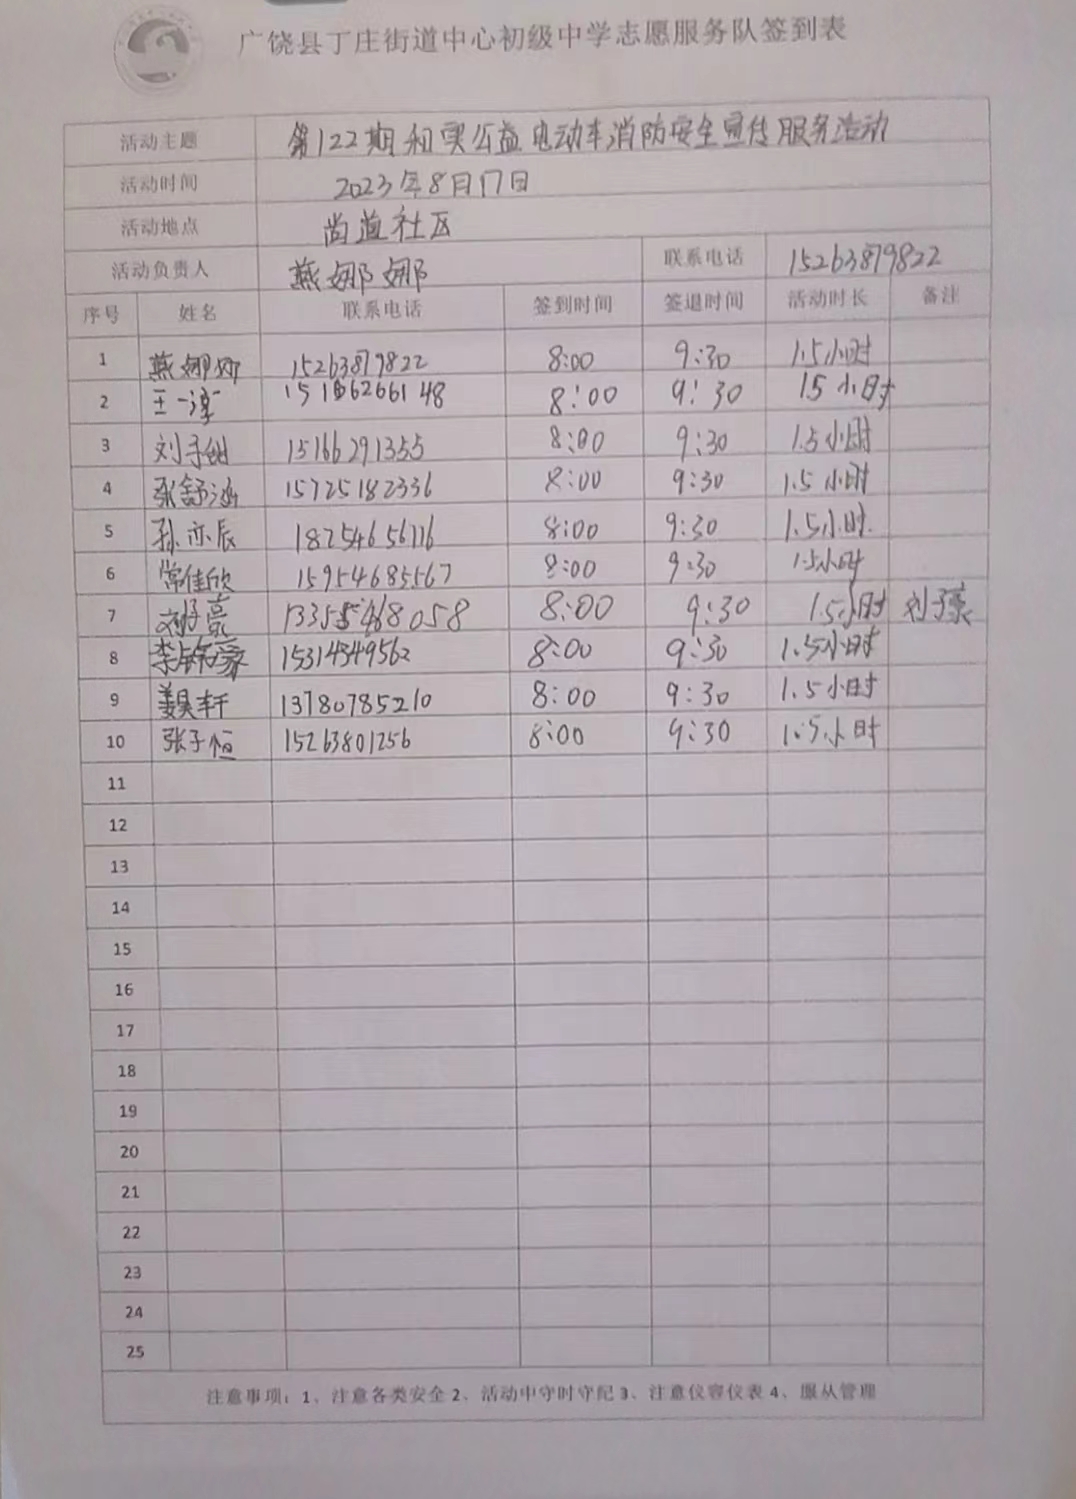 广饶县丁庄街道中心初级中学志愿服务队签到表
活动主题 第122期和实公益电动车消防安全宣传服务活动
活动时间 2023年8月17日
活动地点 尚道社区
活动负责人 燕娜娜 联系电话 15263879822
序号 姓名 联系电话 签到时间 签退时间 活动时长 备注
1 燕娜娜 15263879822 8:00 9:30 1.5小时
2 王一淳 8:00 9:30 15小时
3 刘子钰 15166291355 8:00 9:30 1.5小时
4 张舒涵 15725182336 8:00 9:30 1.5小时
5 孙亦辰 18254656116 8:00 9:30 1.5小时.
6 常佳欣 15954685567 8:00 9:30 1.5小时
7 刘子豪 8:00 9:30 1.5小时 刘子豪
8 15314349562 8:00 9:30 1.5小时
9 姜昊轩 13780785210 8:00 9:30 1.5小时
10 张子恒 15263801256 8:00 9:30 1.5小时
11
12
13
14
15
16
17
18
19
20
21
22
23
24
25
注意事项：1、注意各类安全 2、活动中守时守配 3、注意仪容仪表 4、服从管理